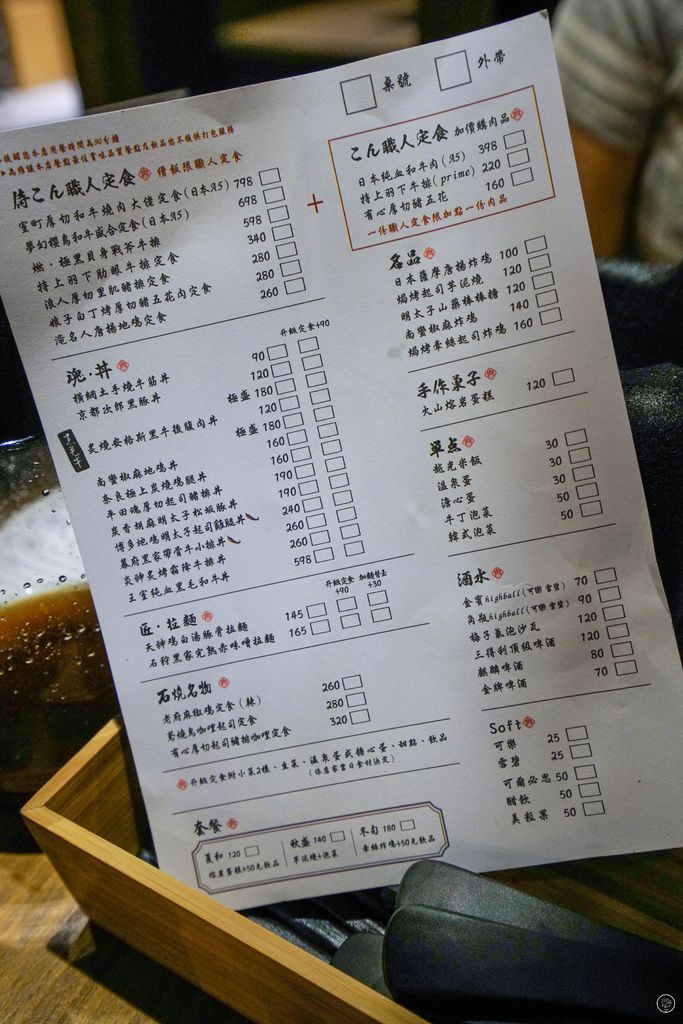 桌號 外帶
侍こん職人定食 積飯限職人定食
室町厚切和牛燒肉大佬定食(日本A5) 798
夢幻櫻島和牛盛合定食(日本A5) 698
燃．極黑貝身戰斧牛排 598
特上羽下肋眼牛排定食 340
浪人厚切里肌豬排定食 280
娘子白丁烤厚切豬五花肉定食 280
滝名人唐揚地鷄定食 260
+
こん職人定食 加價購肉品
日本純血和牛肉(A5) 398
特上羽下牛排(prime) 220
有心厚切豬五花 160
一份職人定食限加點一份肉品
名品
日本薩摩唐揚炸鷄 100
焗烤起司半泥燒 120
明太子山藥棒棒糖 120
南蠻椒麻炸鷄 140
焗烤牽絲起司炸鷄 160
手作菓子
火山熔岩蛋糕 120
魂．丼
升級定食+90
橫網土手燒牛筋丼 90
京都次郎黑豚丼 120
極盛 180
炙燒安格斯黑牛後腹肉丼 120
極盛 180
南蠻椒麻地鷄丼 160
奈良極上炭燒鷄腿丼 160
平田魂厚切起司豬排丼 190
炭香胡麻明太子松坂豚丼 190
博多地鷄明太子起司雞腿丼 240
幕府黑家帶骨牛小排丼 260
炎神炙烤霜降牛排丼 260
王室純血黑毛和牛丼 598
單点
越光米飯 30
溫泉蛋 30
溏心蛋 30
牛丁泡菜 50
韓式泡菜 50
匠．拉麵
升級定食 +90 加麵替玉 +30
天神鷄白湯豚骨拉麵 145
石狩黑家完熟赤味噌拉麵 165
酒水
金賓highball(可樂 雪碧) 70
角瓶highball(可樂 雪碧) 90
梅子氣泡沙瓦 120
三得利頂級啤酒 120
麒麟啤酒 80
金牌啤酒 70
石燒名物
老府麻椒鷄定食(辣) 260
葛燒鳥咖哩起司定食 280
有心厚切起司豬排咖哩定食 320
升級定食附小菜2樣、生菜、溫泉蛋或糖心蛋、甜點、飲品
(依店家當日食材決定)
Soft
可樂 25
雪碧 25
可爾必思 50
醋飲 50
美粒果 50
套餐
夏和 120 秋盛 140 冬旬 180
熔岩蛋糕+50元飲品 半泥燒+泡菜 牽絲炸鷄+50元飲品